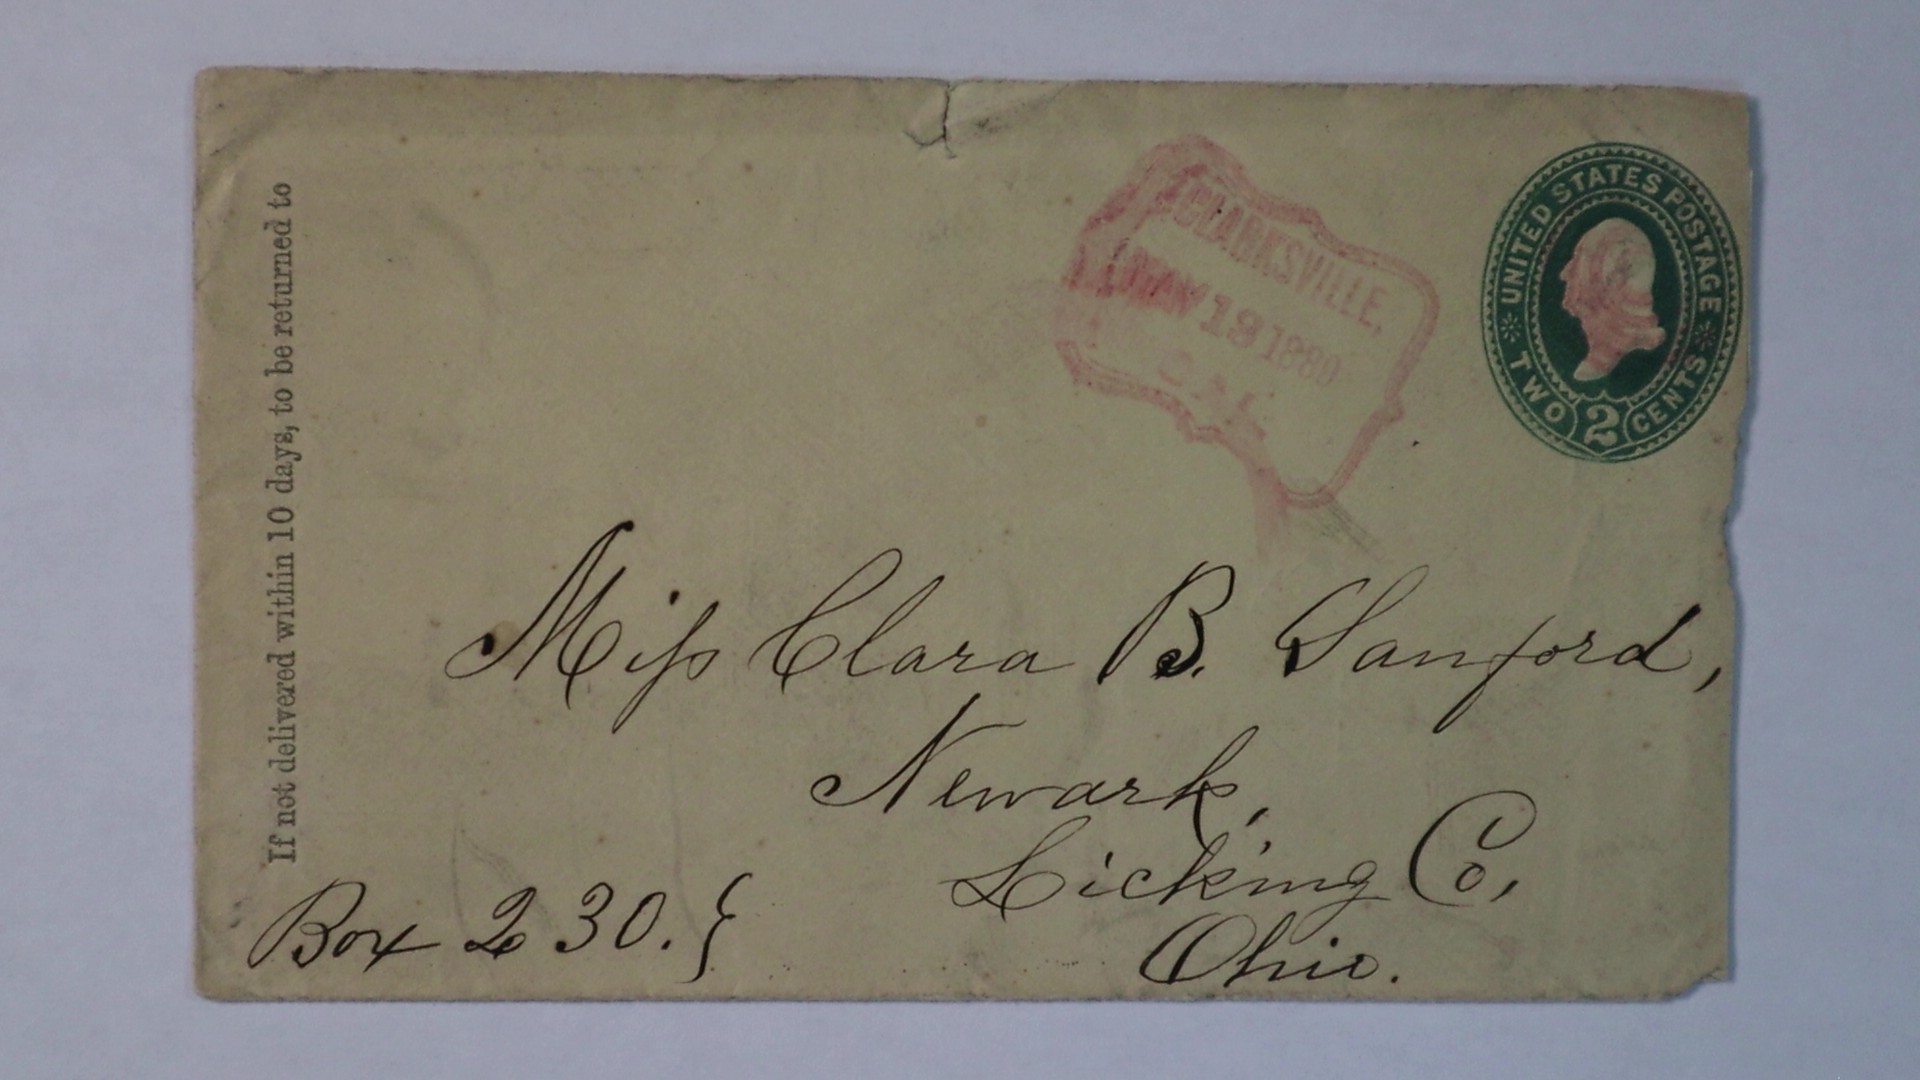 If not delivered within 10 days, to be returned to
CLARKSVILLE,
MAY 18 1889
CAL
UNITED STATES POSTAGE
TWO 2 CENTS
Miss Clara B. Sanford,
Newark,
Licking Co,
Ohio.
Box 230.